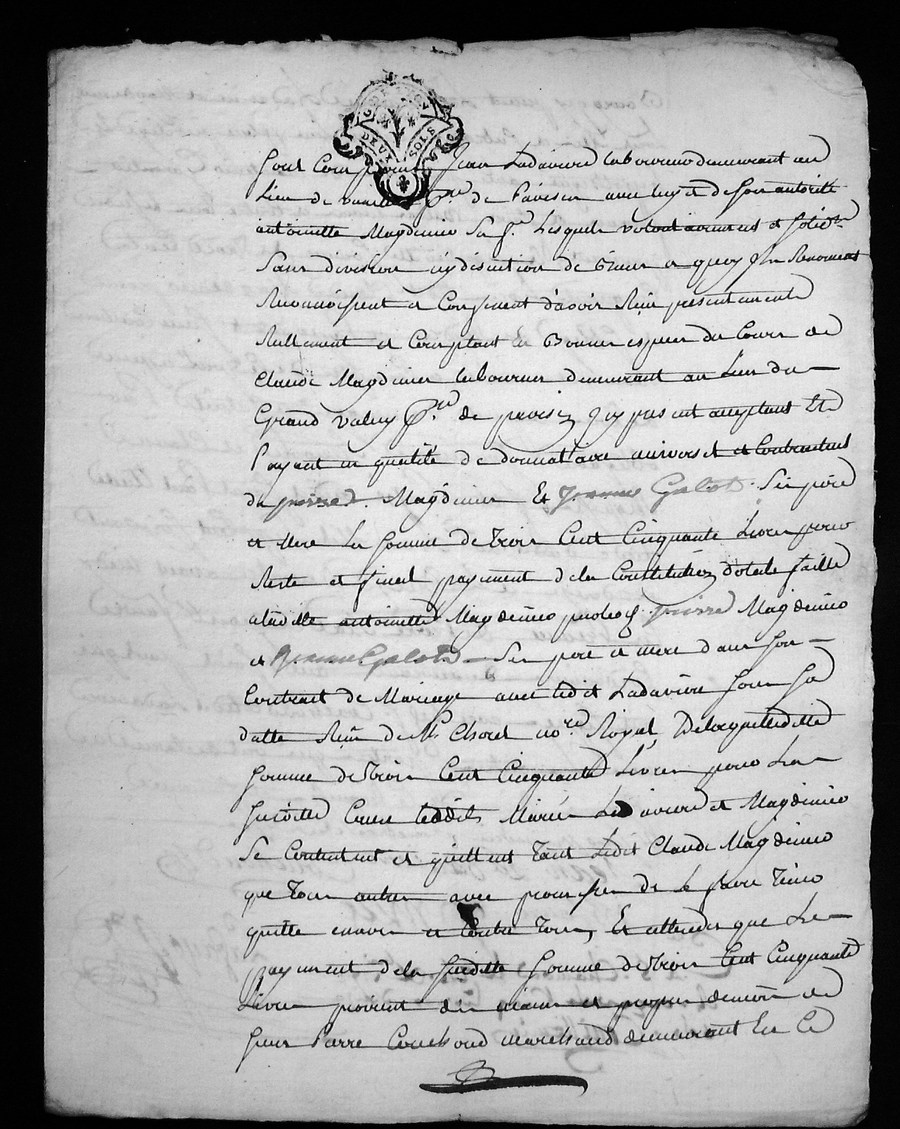 DEUX SOLS
Jean Ladaviere laboureur demeurant au
Lieu de psse de Pavesin avec luy et de son autorité
antoinette Magdinier sa f. Lesquels volontairement et solid.
Sans division ny discution de biens a quoy ils Renoncent
Reconnoissent et Confessent d'avoir Reçu presentement
Reellement et Comptant en Bonnes especes du Cours de
Claude Magdinier laboureur demeurant au Lieu du
Grand psse de pavesin icy present acceptant et
Payant en qualité de donnataire et
du pierre Magdinier Et Jeanne Galot. Ses pere
et Mere La somme de Trois Cent Cinquante Livres pour
Reste et final payement de la Constitution dotale faitte
a laditte antoinette Magdinier par lesd. pierre Magdinier
et Jeanne Galot Ses pere et mere dans son
Contrat de Mariage avec ledit Ladaviere sous sa
datte Reçu de Me Choret nore Royal De laquelle ditte
somme de Trois Cent Cinquante Livres pour les
lesdits Mariés Ladaviere et Magdinier
Se Contentent et quittent Tant Ledit Claude Magdinier
que Tous autres avec promesse de le faire Tenir
quitte envers et Contre Tous, Et attendu que Le
payement de la susditte somme de Trois Cent Cinquante
Livres provient des mains et propres deniers de
sieur Pierre Couchoud marchand demeurant En Ce